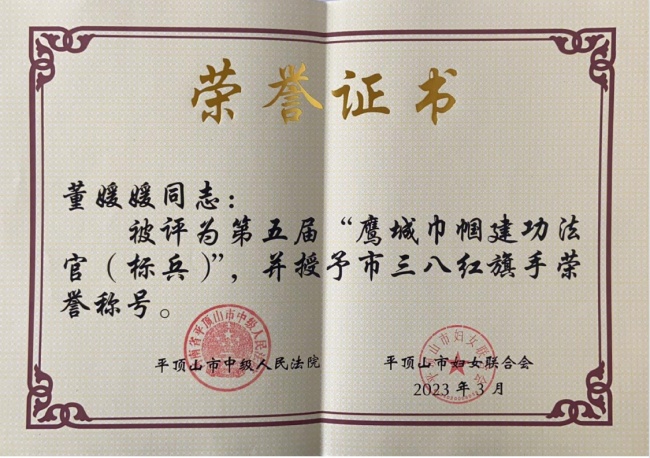 荣誉证书
董媛媛同志：
被评为第五届“鹰城巾帼建功法
官（标兵）”，并授予市三八红旗手荣
誉称号。
河南省平顶山市中级人民法院
平顶山市中级人民法院
平顶山市妇女联合会
平顶山市妇女联合会
2023年3月